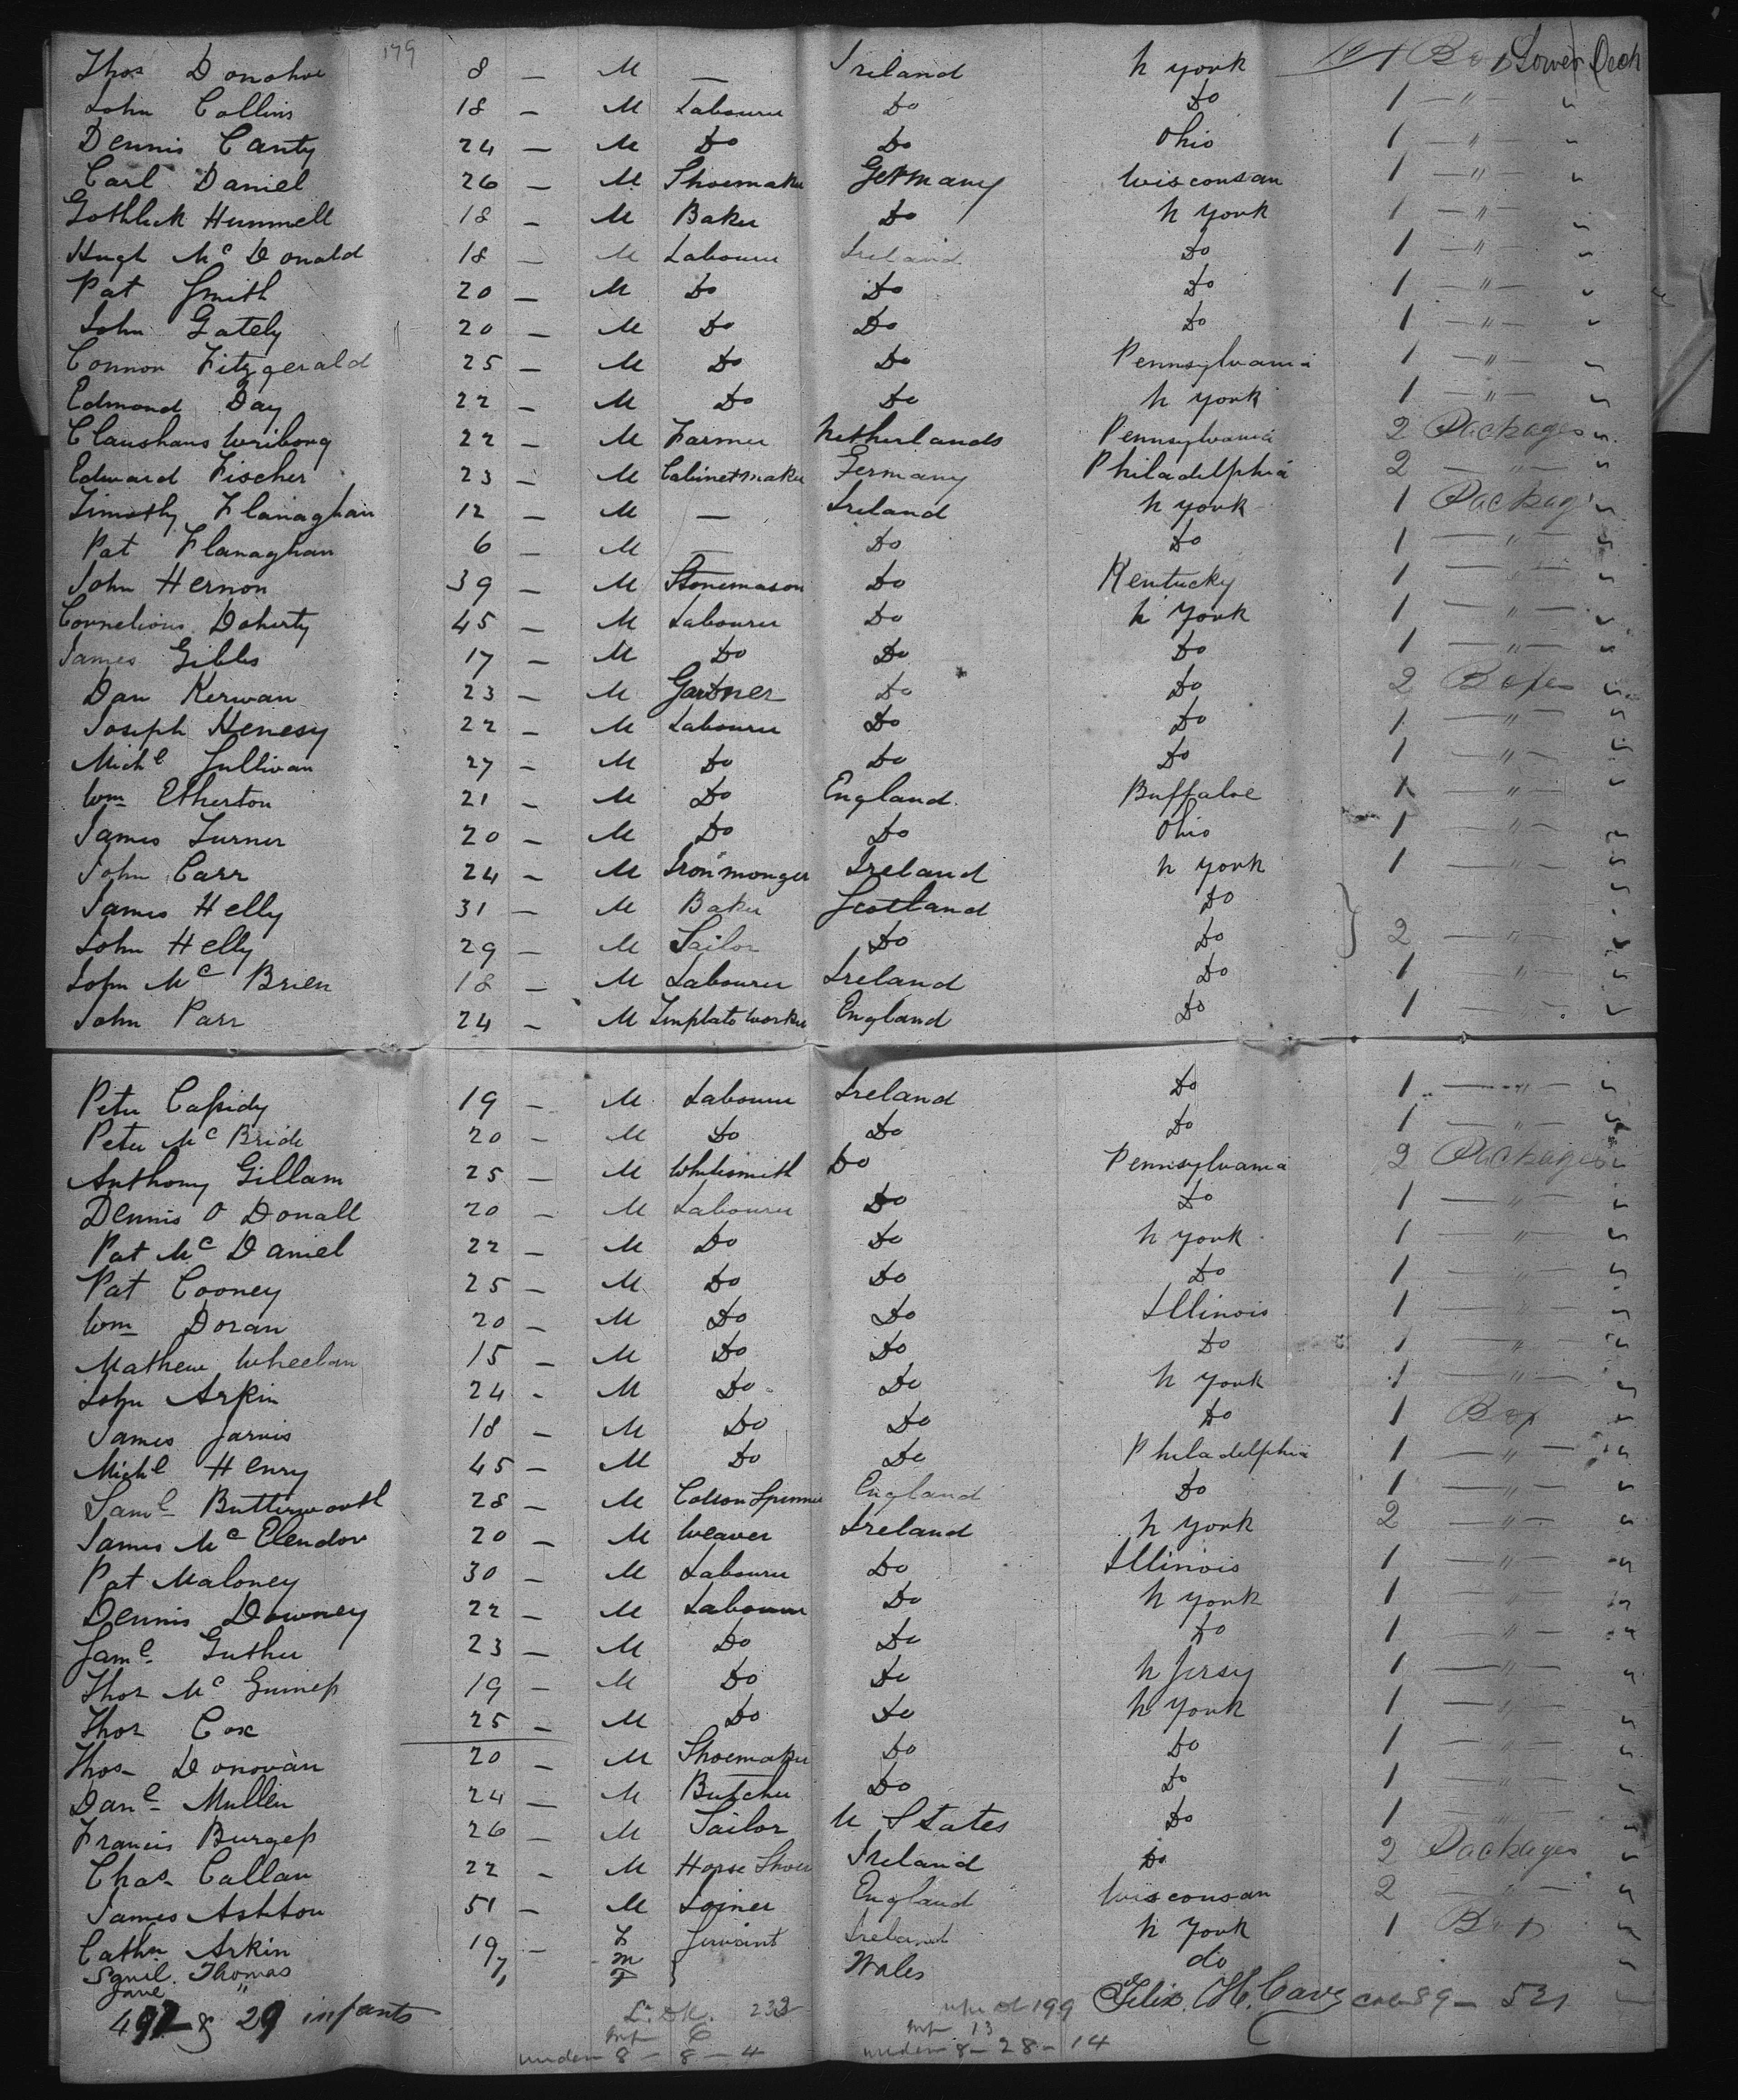 179
Thos Donohoe 8 — M — Ireland N York 1 Box Lower Deck
John Collins 18 — M Labourer Do Do 1 — " —
Dennis Canty 24 — M Do Do Ohio 1 — " —
Carl Daniel 26 — M Shoemaker Germany Wisconsan 1 — " —
Hummell 18 — M Baker Do N York 1 — " —
Hugh Mc Donald 18 — M Labourer Ireland Do 1 — " —
Pat Smith 20 — M Do Do Do 1 — " —
John Gately 20 — M Do Do Do 1 — " —
Connor Fitzgerald 25 — M Do Do Pennsylvania 1 — " —
Edmond Day 22 — M Do Do N York 1 — " —
22 — M Farmer Netherlands Pennsylvania 2 Packages
Edward Fischer 23 — M Cabinetmaker Germany Philadelphia 2 — " —
Timothy Flanaghan 12 — M — Ireland N York 1 Package
Pat Flanaghan 6 — M — Do Do 1 — " —
John Hernon 39 — M Stonemason Do Kentucky 1 — " —
Cornelious Doherty 45 — M Labourer Do N York 1 — " —
James Gibbs 17 — M Do Do Do 1 — " —
Dan Kerwan 23 — M Gardner Do Do 2 Boxes
Joseph Henesy 22 — M Labourer Do Do 1 — " —
Michl Sullivan 27 — M Do Do Do 1 — " —
Wm Etherton 21 — M Do England Buffaloe 1 — " —
James Turner 20 — M Do Do Ohio 1 — " —
John Carr 24 — M Ironmonger Ireland N York 1 — " —
James Helly 31 — M Baker Scotland Do
John Helly 29 — M Sailor Do Do } 2 — " —
John Mc Brien 18 — M Labourer Ireland Do 1 — " —
John Parr 24 — M Tinplate Worker England Do 1 — " —
Peter Cassidy 19 — M Labourer Ireland Do 1 — " —
Peter Mc Bride 20 — M Do Do Do 1 — " —
Anthony Gillam 25 — M Whitesmith Do Pennsylvania 2 Packages
Dennis O Donall 20 — M Labourer Do Do 1 — " —
Pat Mc Daniel 22 — M Do Do N York 1 — " —
Pat Cooney 25 — M Do Do Do 1 — " —
Wm Doran 20 — M Do Do Illinois 1 — " —
Mathew Wheelan 15 — M Do Do Do 1 — " —
John Arkin 24 — M Do Do N York 1 — " —
James Jarvis 18 — M Do Do Do 1 Box
Michl Henry 45 — M Do Do Philadelphia 1 — " —
Saml Butterworth 28 — M Cotton Spinner England Do 1 — " —
James Mc Elendor 20 — M Weaver Ireland N York 2 — " —
Pat Maloney 30 — M Labourer Do Illinois 1 — " —
Dennis Downey 22 — M Labourer Do N York 1 — " —
Saml Guthrie 23 — M Do Do Do 1 — " —
Thos Mc Guiness 19 — M Do Do N Jersy 1 — " —
Thos Cox 25 — M Do Do N York 1 — " —
Thos Donovan 20 — M Shoemaker Do Do 1 — " —
Danl Mullen 24 — M Butcher Do Do 1 — " —
Francis Burgess 26 — M Sailor U States Do 1 — " —
Chas Callan 22 — M Horse Shoer Ireland Do 2 Packages
James Ashton 51 — M Joiner England Wisconsan 2 — " —
Cathn Arkin 19 — F Servant Ireland N York 1 Box
Saml. Thomas 7 m } Wales do
Jane " F
497 & 29 infants Lr. DK. 233 199 Felix 89 — 521
Inf 6 Inf 13
under 8 — 8 — 4 under 8 — 28 — 14